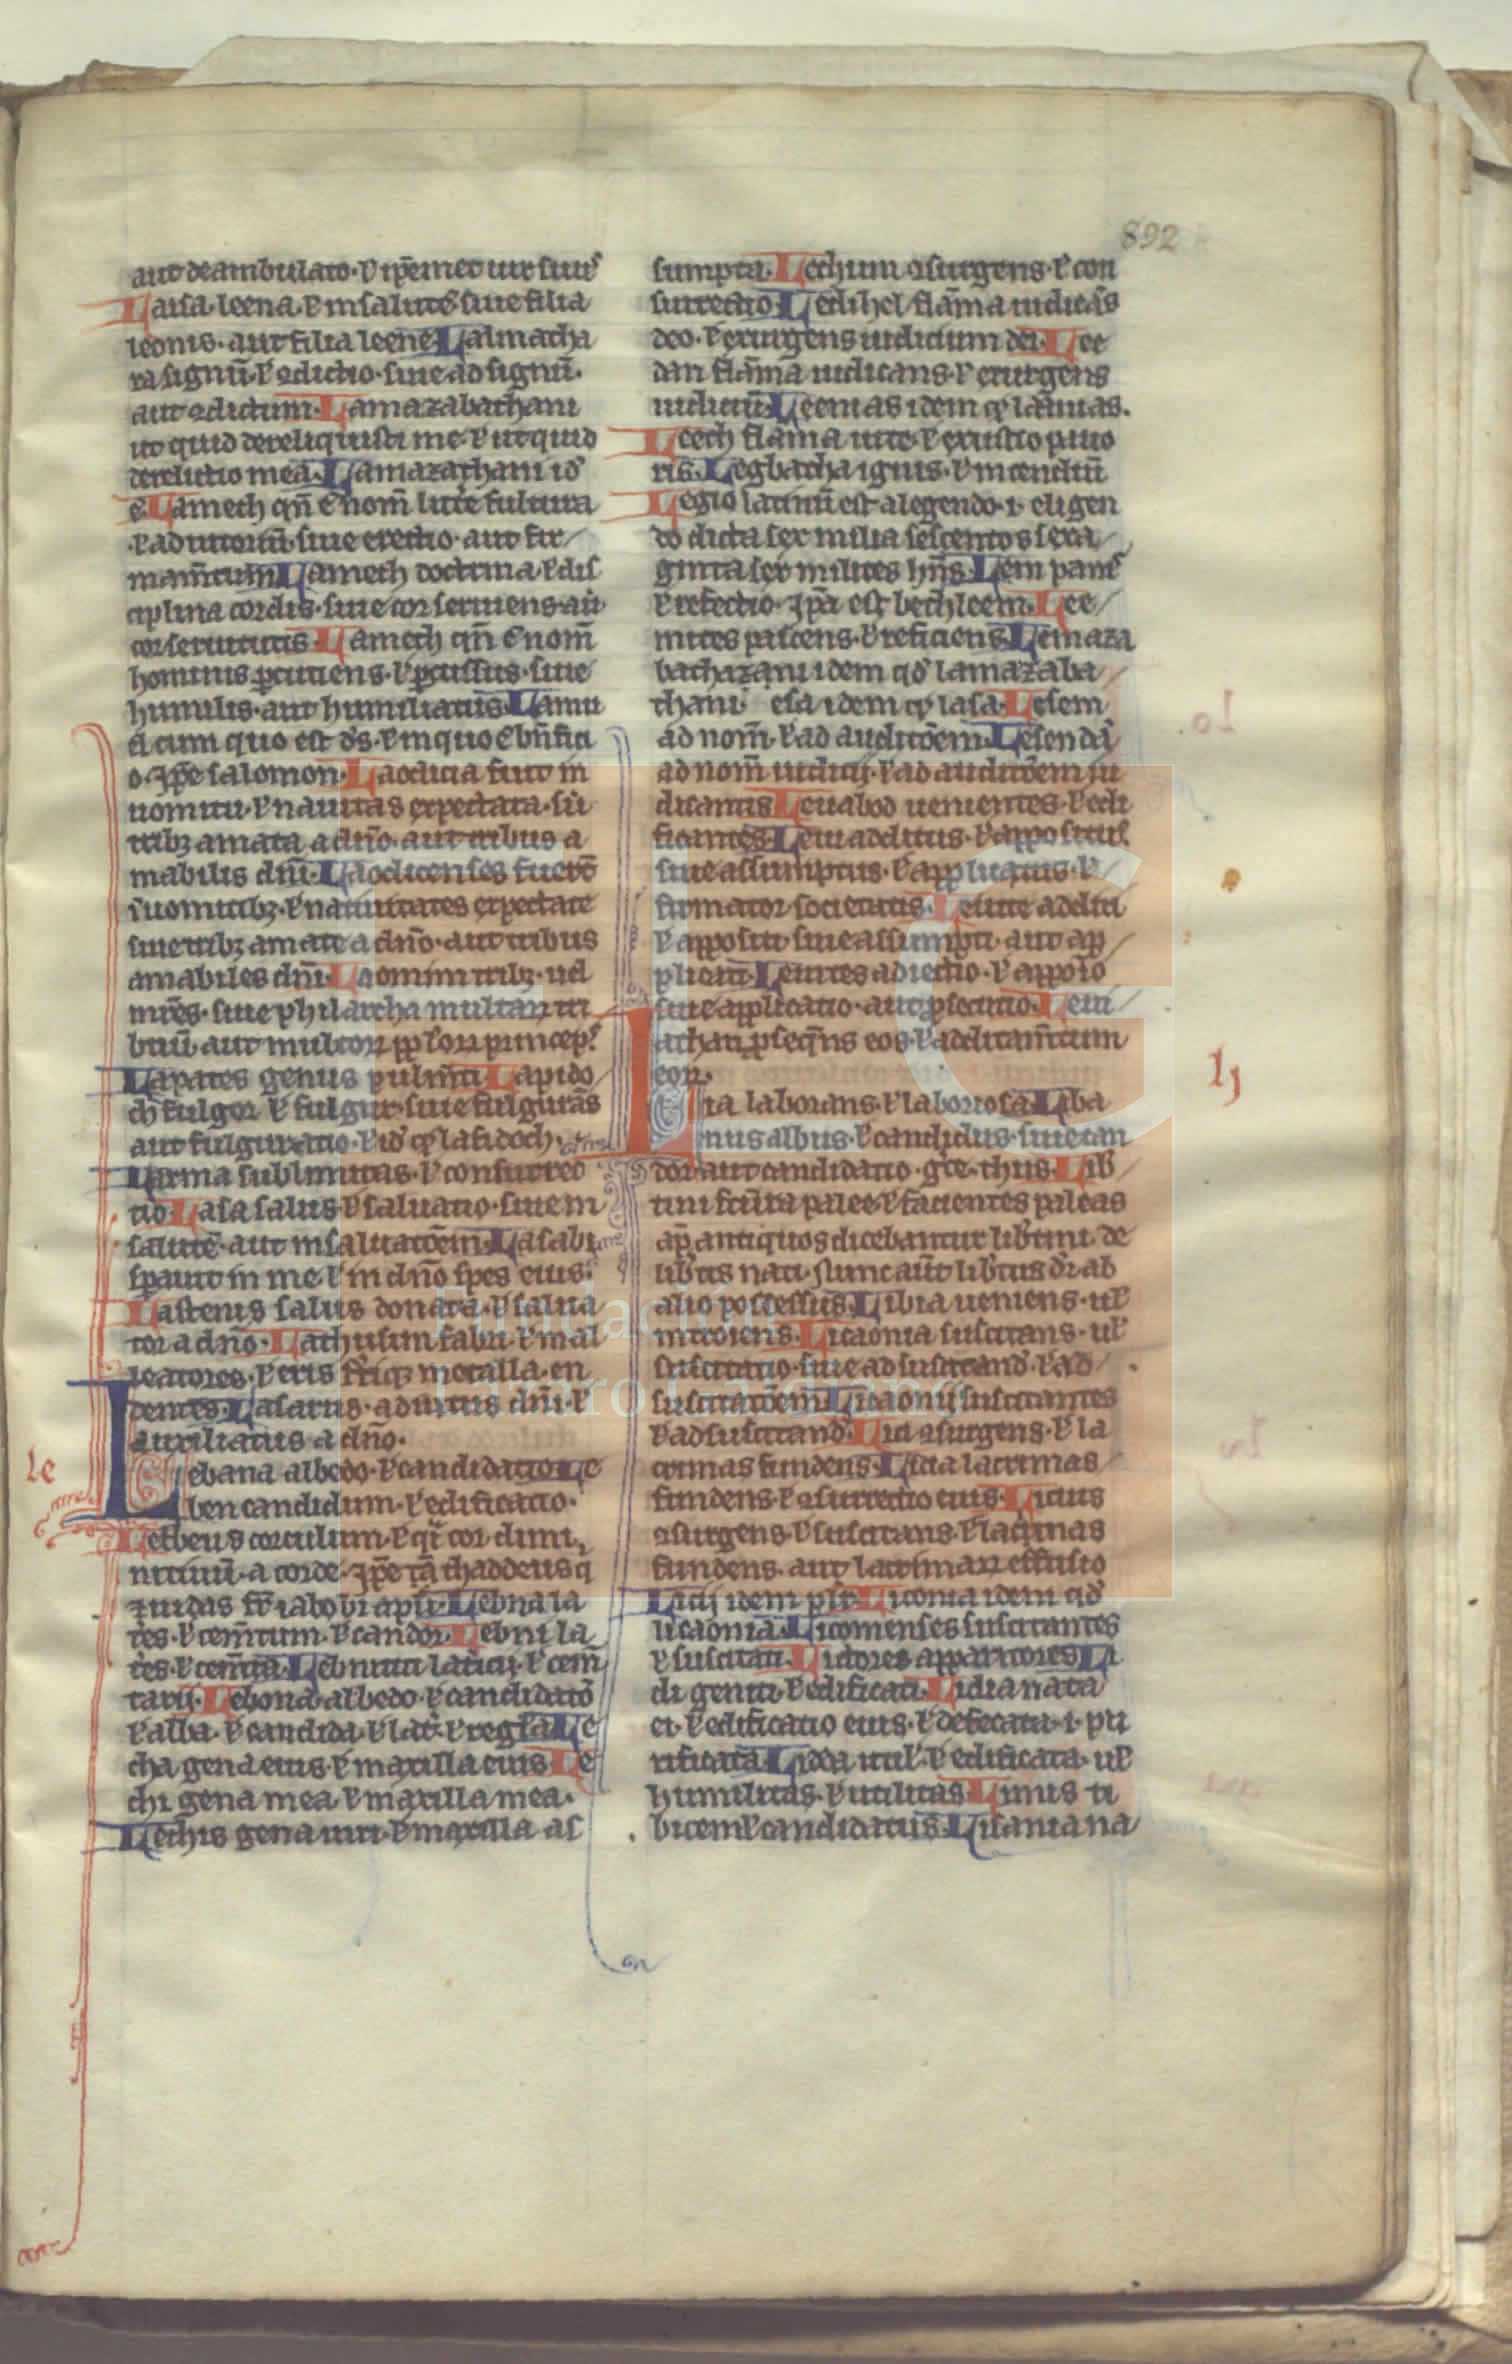 892
aut deambulato· ⁊ ip̄emet uir suus
Laisa leena· ⁊ in salutē siue filia
leonis· aut filia leene· Lalmatha
ra signū· ⁊ ꝯdictio· siue ad signū·
aut ꝯdictum· Lamazabathani
ut quid dereliquisti me· ⁊ ut quid
derelictio mea· Lamazathani id'
ē· Lamech qn̄ ē nom̄ litt̄e fultura
·⁊ adiutoriū· siue erectio· aut fir
mam̄tum Lamech doctrina· ⁊ dis
ciplina cordis· siue cor seruiens· aū
cor seruitutis· Lamech qn̄ ē nom̄
hominis ꝑcutiens· ⁊ ꝑcussus· siue
humilis· aut humiliatus· Lamu
el cum quo est d's· ⁊ in quo ē
o· Ip̄e salomon· Laodicia fuit in
uomitu· ⁊ natiuitas expectata· siū
tribꝫ amata a dn̄o· aut tribus a
mabilis dn̄i· Laodicenses
uomitibꝫ· ⁊ natiuitates expectate
siue tribꝫ amate a dn̄o· aut tribus
amabiles dn̄i· Laomim tribꝫ· uel
mr̄es· siue philarcha multaꝝ tri
buū· aut multoꝝ pp̄loꝝ princeps
Lapates genus pulm̄ti· Lapido
th fulgor ⁊ fulgur· siue fulgurās
aut fulguratio· ⁊ id' qͩ lafidoth·
Larma sublimitas· ⁊ consurrec
tio· Lasa salus· ⁊ saluatio· siue in
salutē· aut in saluatōem· Lasabi
sꝑauit in me· ⁊ in dn̄o spes eius·
Lastenis salus donata· ⁊ salua
tor a dn̄o· Lathusim fabri· ⁊ mal
leatores· ⁊ eris metalla· en
dentes· Lasarus· adiutus dn̄i· ⁊
auxiliatus a dn̄o·
le
Lebana albedo· ⁊ candidatio Le
ben candidum· ⁊ edificatio·
Lebbeus corculum· ⁊ cor dimi
nitiuū· a corde· Ip̄e tā thaddeus q̄
⁊ iudas fr̄ iacobi apl'i· Lebna la
tes· ⁊ cem̄tum· ⁊ candor· Lebni la
tes· ⁊ cem̄ta· Lebnitici lat̄icij· ⁊ cem̄
tarij· Lebona· albedo· ⁊ candidatō
⁊ alba· ⁊ candida· ⁊ Le
cha gena eius· ⁊ maxilla eius· Le
chi gena mea· ⁊ maxilla mea·
Lechis gena uiri· ⁊ maxilla as
sumpta· Lechum ꝯsurgens· ⁊ con
surrectio Ledihel flāma iudicās
deo· ⁊ exurgens iudicium dei· Lee
dan flāmā iudicans· ⁊ exurgens
iudiciū· Leemas idem qͩ lamias·
Leech flāma uite· ⁊ exustio puo
ris· Legbatha ignis· ⁊ incendiū
Legio latinū est a legendo· i· eligen
do dicta sex milia sescentos sexa
ginta sex milites hn̄s· Lem panis
⁊ refectio· Ip̄a est bethleem· Lee
mites pascens· ⁊ reficiens· Lemaza
bathazani idem qd' lamazaba
thani· esa idem qͩ lasa· Lesem
ad nom̄· ⁊ ad auditōem· Lesendā
ad nom̄ iudicij· ⁊ ad auditōem iu
dicantis Leuabod uenientes· ⁊ edi
ficantes· Leui additus· ⁊ appositus
siue assumptus· ⁊ applicatus· ⁊
firmator societatis· Leuite additi
⁊ appositi siue assumpti· aut ap
plicati· Leuites adiectio· ⁊ appoītō
siue applicatio· aut ꝓsecutio· Leui
athan ꝓseqn̄s eos· ⁊ additam̄tum
eoꝝ·
lj
Lia laborans· ⁊ laboriosa Liba
nus albus· ⁊ candidus· siue can
dor· aut candidatio· gͬce· thus· Lib
tini paleē· ⁊ facientes paleas
ap̄ antiquos dicebantur lib̄tini· de
lib̄tis nati· Nunc aūt lib̄tus dr̄ ab
alio possessus· Libia ueniens· ul'
introiens· Licaonia suscitans· ul'
suscitatio· siue ad suscitand'· ⁊ ad
suscitatōem· Licaonij suscitantes
⁊ ad suscitand'· Lici ꝯsurgens· ⁊ la
crimas fundens· Licia lacrimas
fundens· ⁊ ꝯsurrectio eius· Licius
ꝯsurgens· ⁊ suscitans· ⁊ lac̄mas
fundens· aut lacrimaꝝ effusio
Licij idem Liconia idem qd'
licaonia· Liconienses suscitantes
⁊ suscitati· Lictores apparitores Li
di geniti· ⁊ edificati· Lidia nata
ei· ⁊ edificatio eius· ⁊ defecata· i· pu
rificata· Lidda utilꝭ· ⁊ edificata· ul'
humilitas· ⁊ utilitas· Linus ti
bicem· ⁊ candidatus· Lisania na